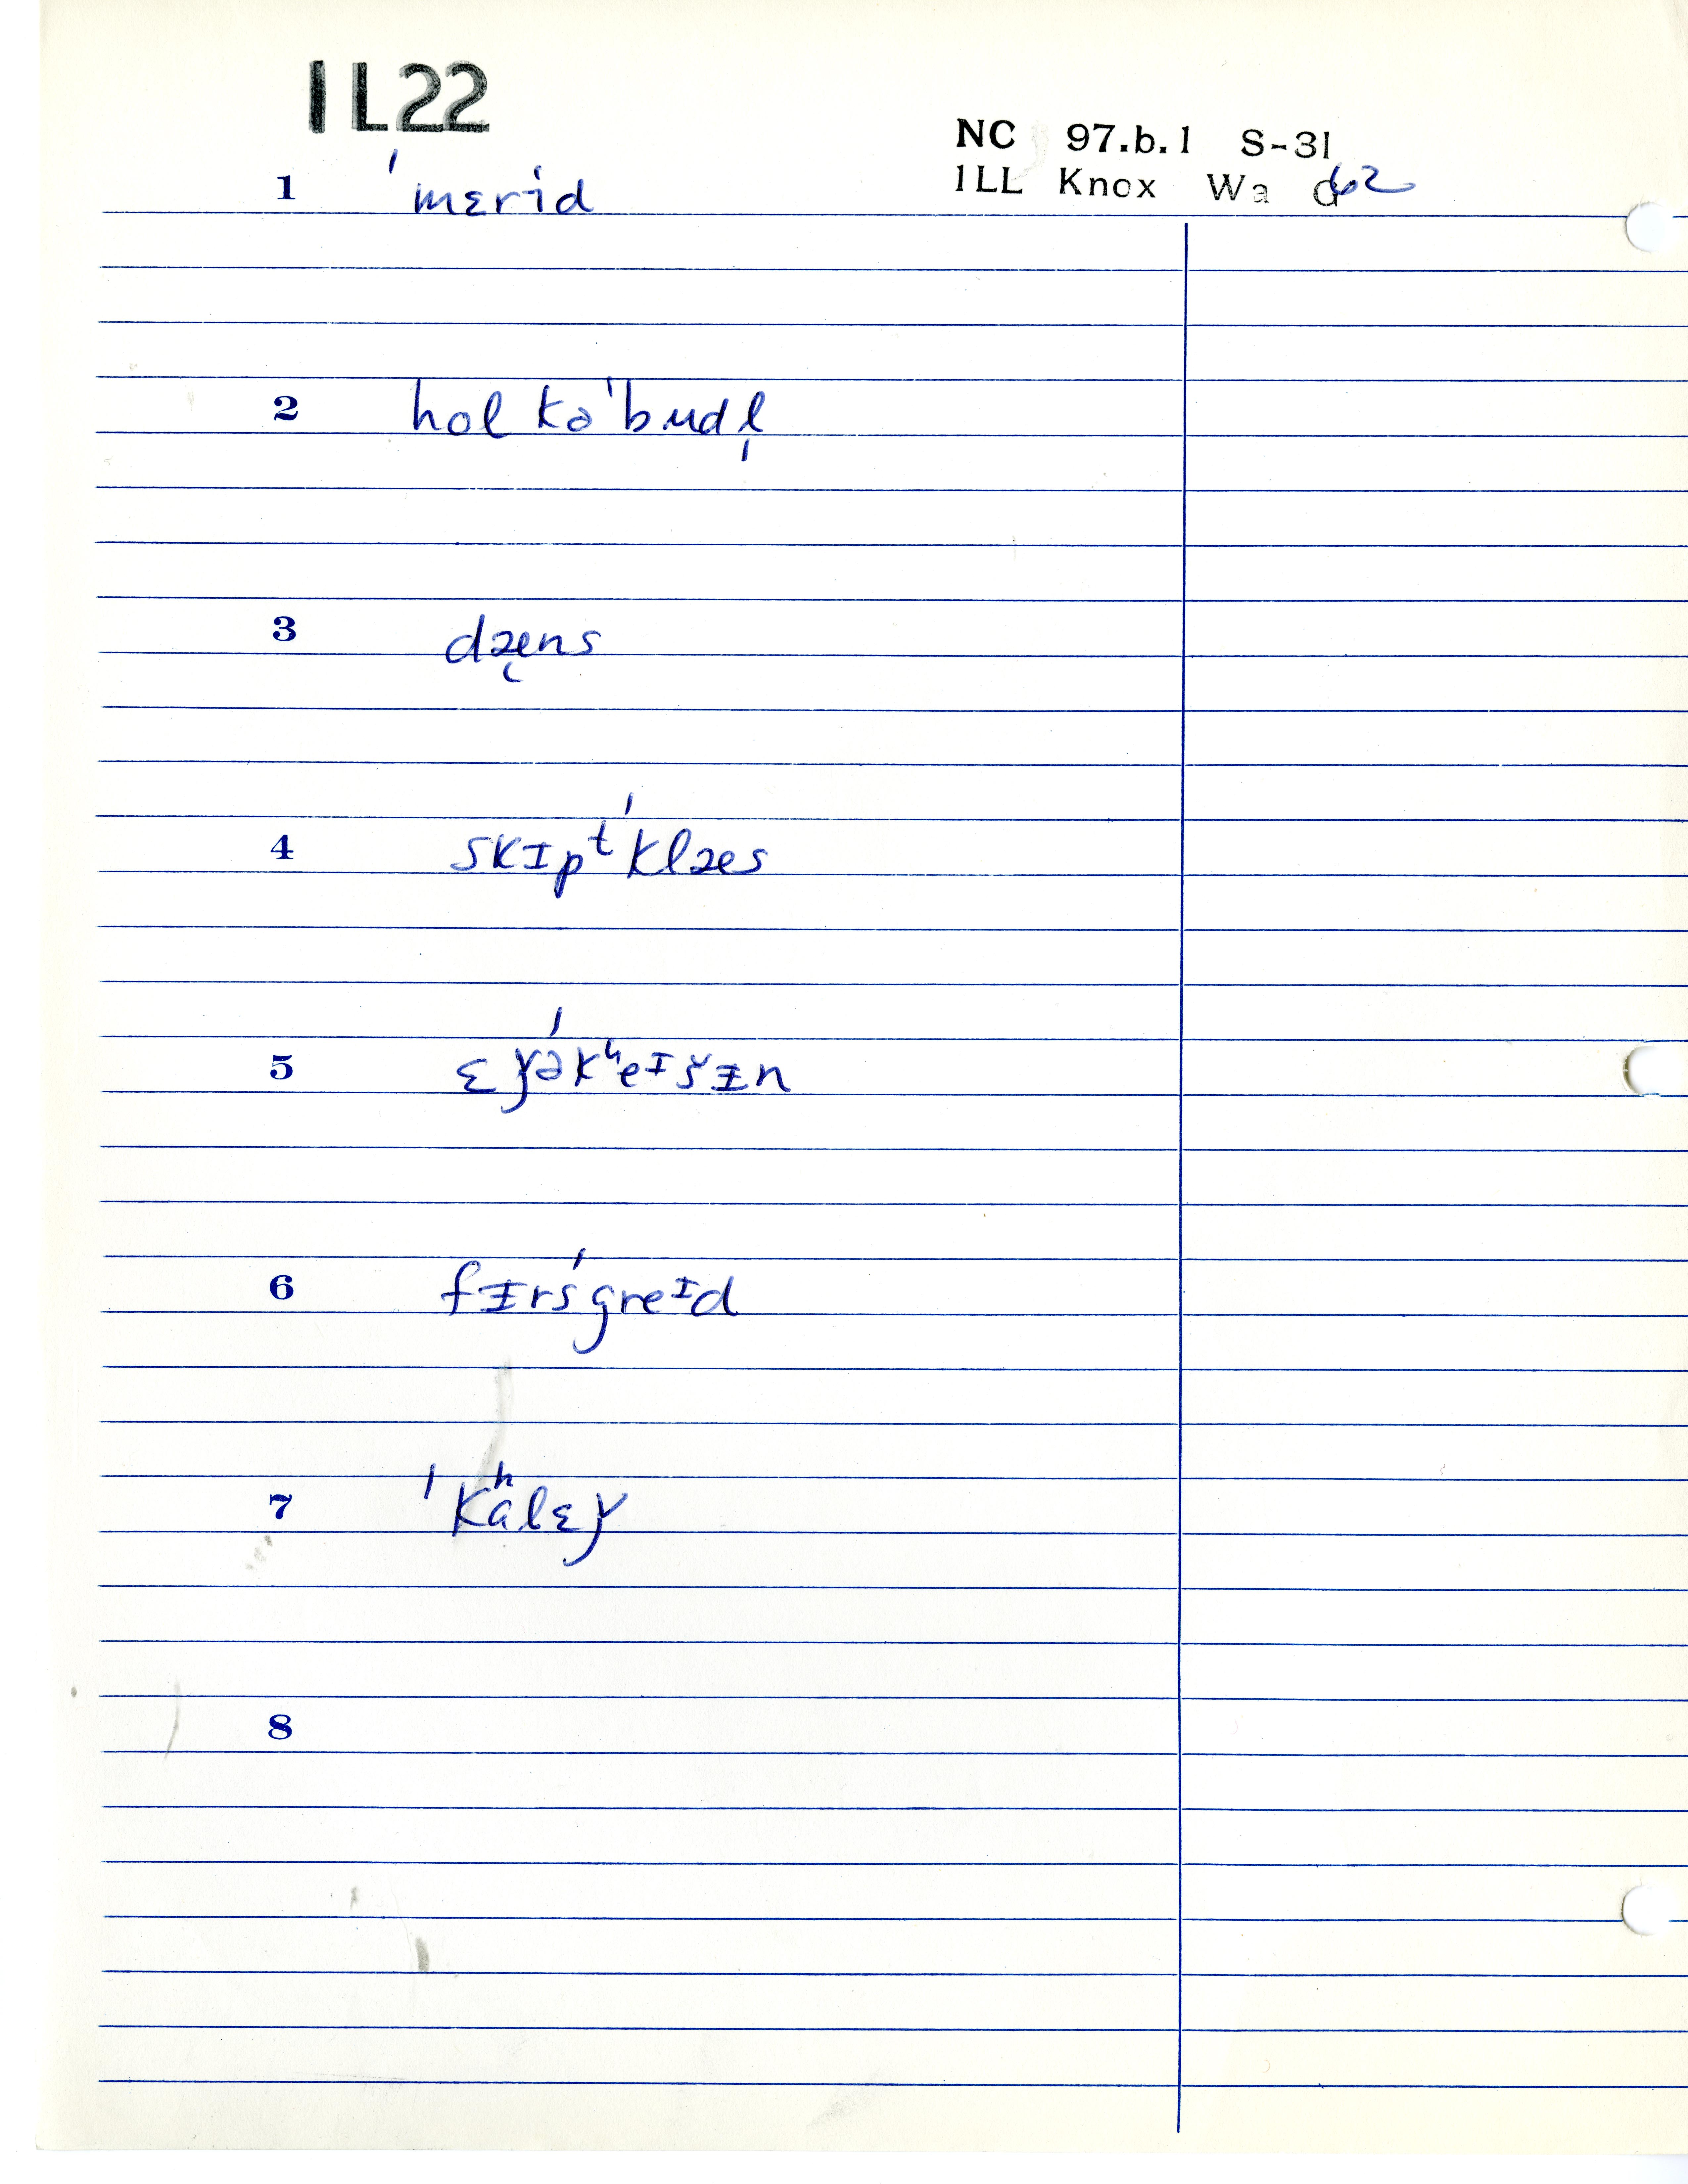 1L22
NC 97.b.1 S-31
1LL Knox Wa G62
1 ˈmɛrid
2 hol kəˈbudl̩
3 dæ̨ns
4 skɪpᵗˈklæs
5 ɛɣ̌əˈkʰeᴵšɪ̵n
6 fɪ̵rsˈgreᴵd
7 ˈkʰälɛɣ̌
8